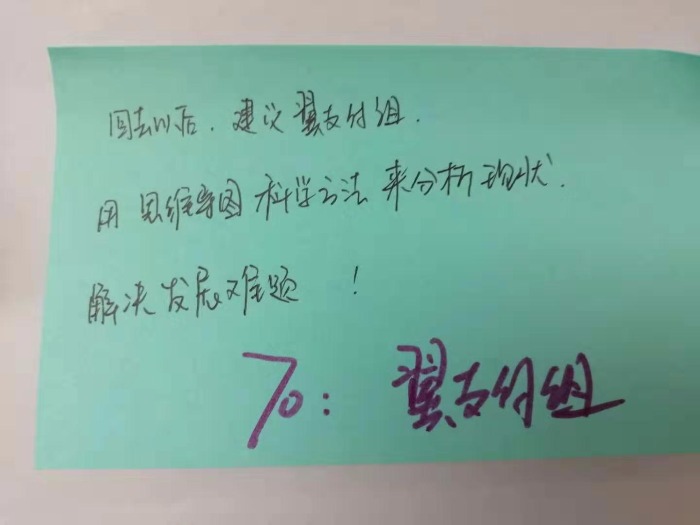 回去以后，建议翼支付组.
用思维导图科学方法来分析现状.
解决发展难题！
To：翼支付组